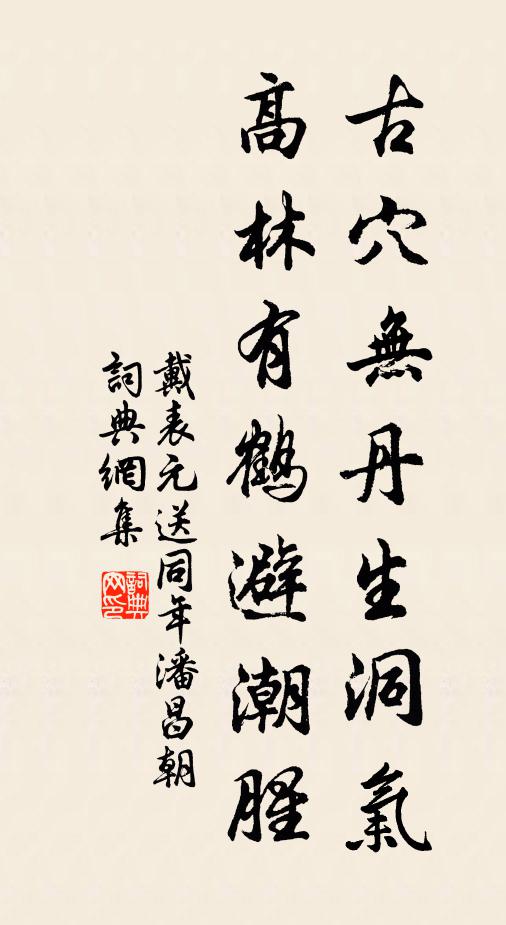 古穴無丹生洞氣
高林有鶴避潮腥
戴表元送同年潘昌朝
詞典網集
詞典网印